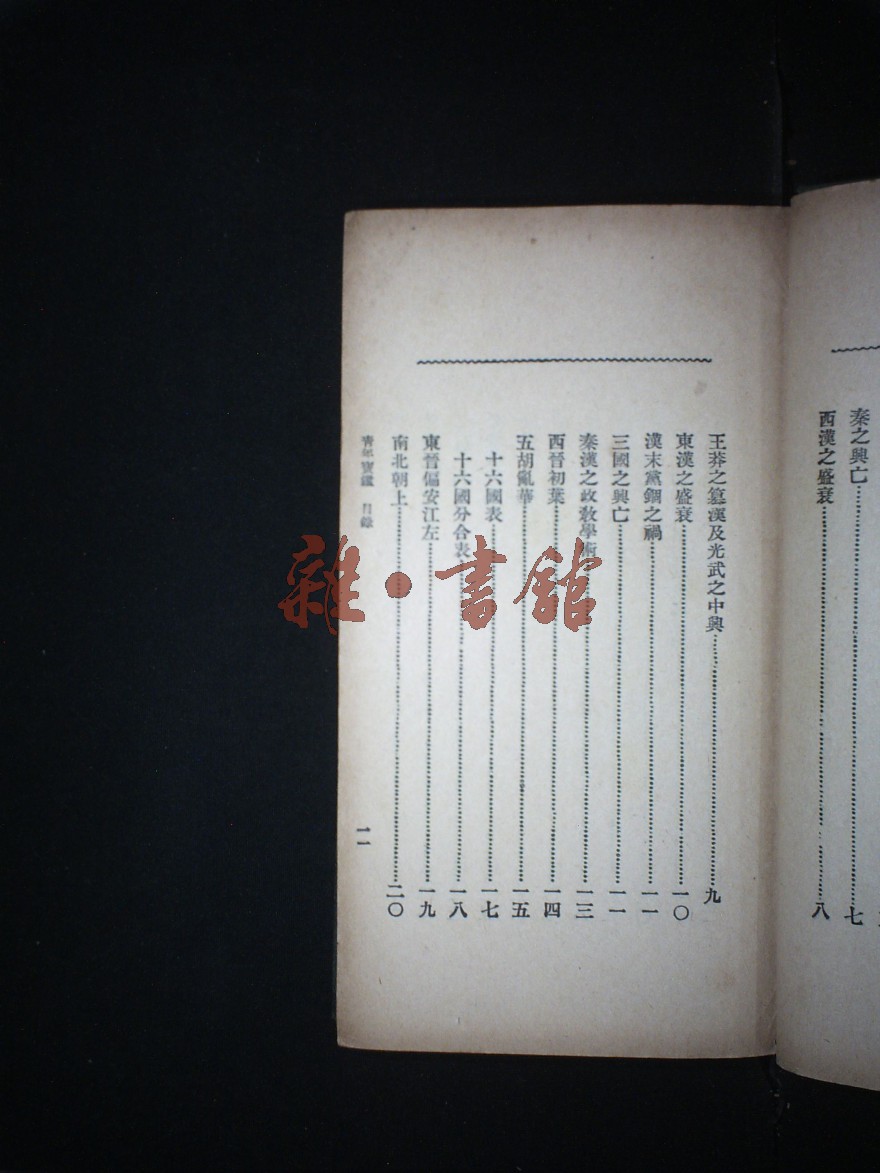 秦之興亡……七
西漢之盛衰……八
王莽之篡漢及光武之中興……九
東漢之盛衰……一〇
漢末黨錮之禍……一一
三國之興亡……一一
秦漢之政教學術……一三
西晉初葉……一四
五胡亂華……一五
十六國表……一七
十六國分合表……一八
東晉偏安江左……一九
南北朝上……二〇
青年寶鑑 目錄
一一
雜·書館